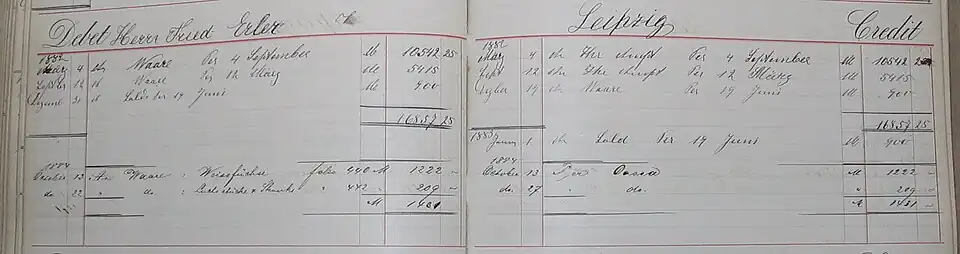 Debet Herrn Fried Erler
Leipzig Credit
1882
März 4 An Waare Per 4 September M 10542 25
Septbr 12 " Waare Per 12 März M 5415
Dezember 31 " Saldo Per 19 Juni M 900
16857 25
1884
October 13 An Waare Weissfüchse folio 440 M 1222 –
do. 22 " do. " 442 " 209 –
M 1431
1882
März 4 Per 4 September M 10542 25
Sept 12 Per 12 März M 5415
19 Waare Per 19 Juni M 900
16857 25
1883
Januar 1 Saldo Per 19 Juni M 900
1884
October 13 Per Cassa M 1222 –
do. 27 " do. " 209 –
M 1431 –